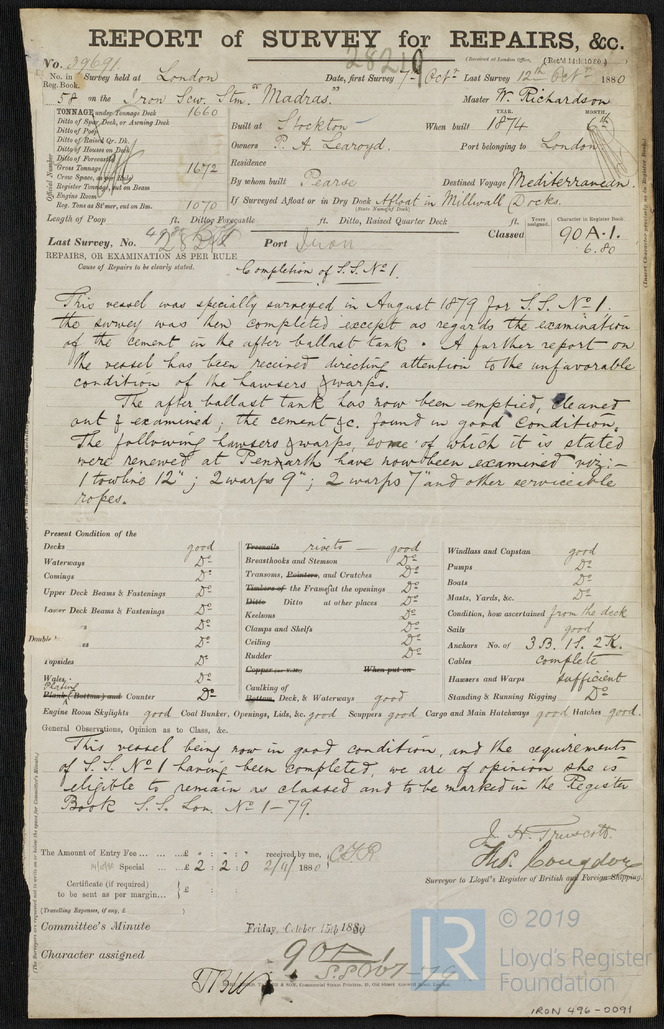 REPORT of SURVEY for REPAIRS, &c.
28210
(Received at London Office,
No. 39691
No. in Reg. Book. Survey held at London Date, first Survey 7th Octr Last Survey 12th Octr 1880
58 on the Iron Scw. Stm. "Madras." Master W. Richardson
TONNAGE under Tonnage Deck 1660
Ditto of Spar Deck, or Awning Deck
Ditto of Poop
Ditto of Raised Qr. Dk.
Ditto of Houses on Deck
Ditto of Forecastle
Gross Tonnage 1672
Crew Space, as per Rule
Register Tonnage, cut on Beam
Engine Room
Reg. Tons as St'mer, cut on Bm. 1070
Official Number
Built at Stockton When built YEAR. 1874 MONTH. 6th
Owners P. A. Learoyd. Port belonging to London
Residence
By whom built Pearse Destined Voyage Mediterranean.
If Surveyed Afloat or in Dry Dock Afloat in Millwall Docks.
(State Name of Dock)
Length of Poop ft. Ditto, Forecastle ft. Ditto, Raised Quarter Deck ft.
Last Survey, No. Port Iron
Classed Years assigned. Character in Register Book. 90 A.1.
6.80
REPAIRS, OR EXAMINATION AS PER RULE
Cause of Repairs to be clearly stated.
Completion of S.S. No 1.
This vessel was specially surveyed in August 1879 for S.S. No 1.
the survey was then completed except as regards the examination
of the cement in the after ballast tank. A further report on
the vessel has been received directing attention to the unfavorable
condition of the hawsers & warps.
The after ballast tank has now been emptied, cleaned
out & examined; the cement &c. found in good condition.
The following hawsers & warps, some of which it is stated
were renewed at Pennarth have now been examined viz:-
1 towline 12"; 2 warps 9"; 2 warps 7" and other serviceable
ropes.
Present Condition of the
Decks good
Waterways Do
Comings Do
Upper Deck Beams & Fastenings Do
Lower Deck Beams & Fastenings Do
Do
Double Do
Topsides Do
Wales, Do
Plating
Plank (Bottom) and Counter Do
Treenails rivets good
Breasthooks and Stemson Do
Transoms, Pointers, and Crutches Do
Timbers of the Frames at the openings Do
Ditto Ditto at other places Do
Keelsons Do
Clamps and Shelfs Do
Ceiling Do
Rudder Do
Copper When put on
Caulking of
Bottom, Deck, & Waterways good
Windlass and Capstan good
Pumps Do
Boats Do
Masts, Yards, &c. Do
Condition, how ascertained from the deck
Sails good
Anchors No. of 3 B. 1 S. 2 K.
Cables complete
Hawsers and Warps sufficient
Standing & Running Rigging Do
Engine Room Skylights good Coal Bunker, Openings, Lids, &c. good Scuppers good Cargo and Main Hatchways good Hatches good.
General Observations, Opinion as to Class, &c.
This vessel being now in good condition, and the requirements
of S.S. No 1 having been completed, we are of opinion she is
eligible to remain as classed and to be marked in the Register
Book S.S. Lon. No 1-79.
J. H. Truscott.
Thos. Congdon
Surveyor to Lloyd's Register of British and Foreign Shipping.
The Amount of Entry Fee ... ... £ : : received by me,
Special ... £ 2 : 2 : 0 2/11/1880
Certificate (if required) to be sent as per margin... £ :
(Travelling Expenses, if any, £ )
Committee's Minute Friday, October 15th 1880
Character assigned 90 A 1
S.S. No 1-79
© 2019
LR
Lloyd's Register
Foundation
IRON 496-0091